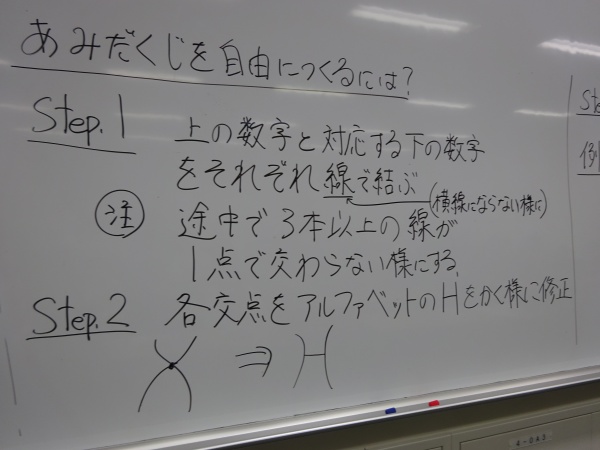 あみだくじを自由につくるには?
Step.1 上の数字と対応する下の数字
をそれぞれ線で結ぶ
(横線にならない様に)
注 途中で3本以上の線が
1点で交わらない様にする.
Step.2 各交点をアルファベットのHをかく様に修正
⇒
Ste
例
4-043